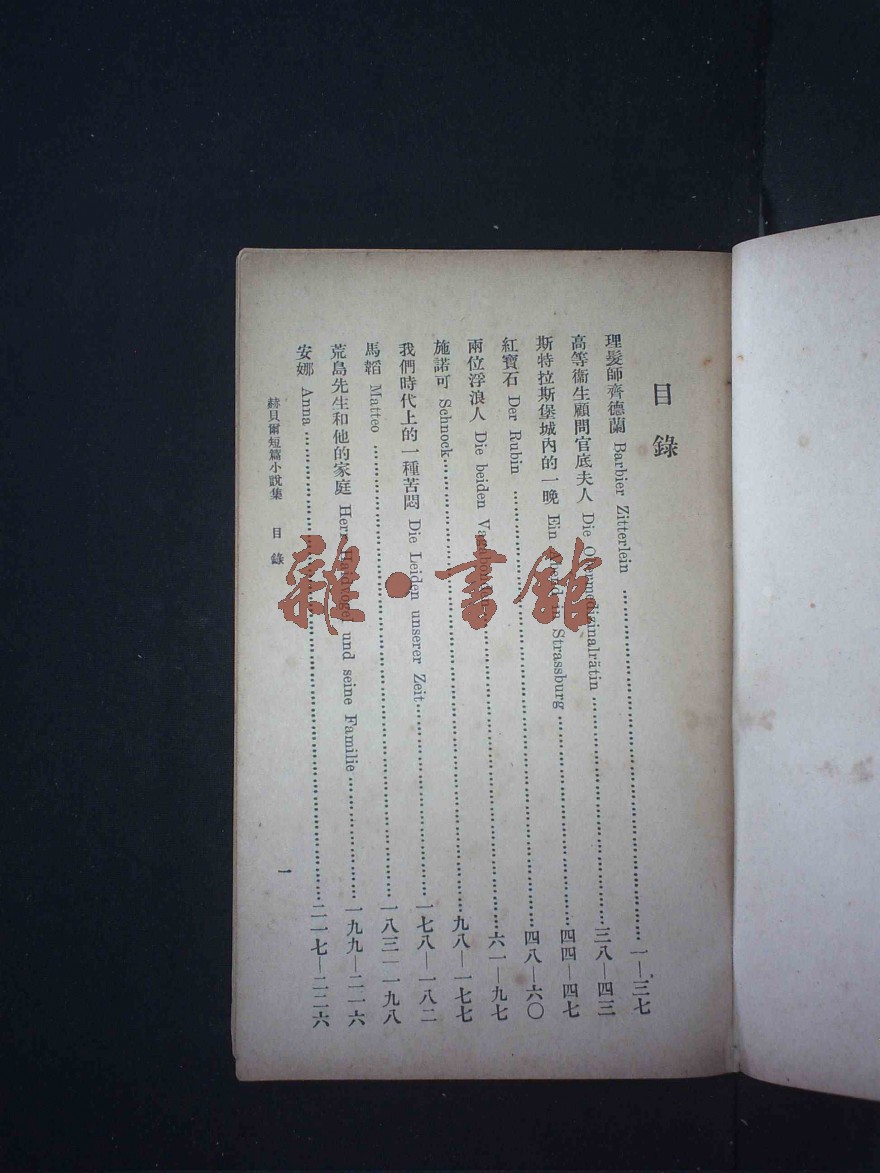 目錄
理髮師齊德蘭 Barbier Zitterlein ……一—三七
高等衞生顧問官底夫人 Die Obermedizinalrätin ……三八—四三
斯特拉斯堡城內的一晚 Ein Abend in Strassburg ……四四—四七
紅寶石 Der Rubin ……四八—六〇
兩位浮浪人 Die beiden Vagabonden ……六一—九七
施諾可 Schnock ……九八—一七七
我們時代上的一種苦悶 Die Leiden unserer Zeit ……一七八—一八二
馬韜 Matteo ……一八三—一九八
荒島先生和他的家庭 Herr Haidvogel und seine Familie ……一九九—二一六
安娜 Anna ……二一七—二二六
赫貝爾短篇小說集 目錄
一
雜·書館